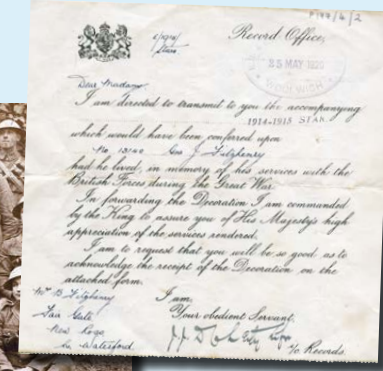 P144/4/2
Record Office,
25 MAY 1920
WOOLWICH
Dear Madam
I am directed to transmit to you the accompanying
1914-1915 STAR
which would have been conferred upon
No 13140 Geo J Fitzhenry
had he lived, in memory of his services with the
British Forces during the Great War.
In forwarding the Decoration I am commanded
by the King to assure you of His Majesty's high
appreciation of the services rendered.
I am to request that you will be so good as to
acknowledge the receipt of the Decoration on the
attached form.
I am,
Your obedient Servant,
i/c Records.
B Fitzhenry
New Ross
Co Waterford